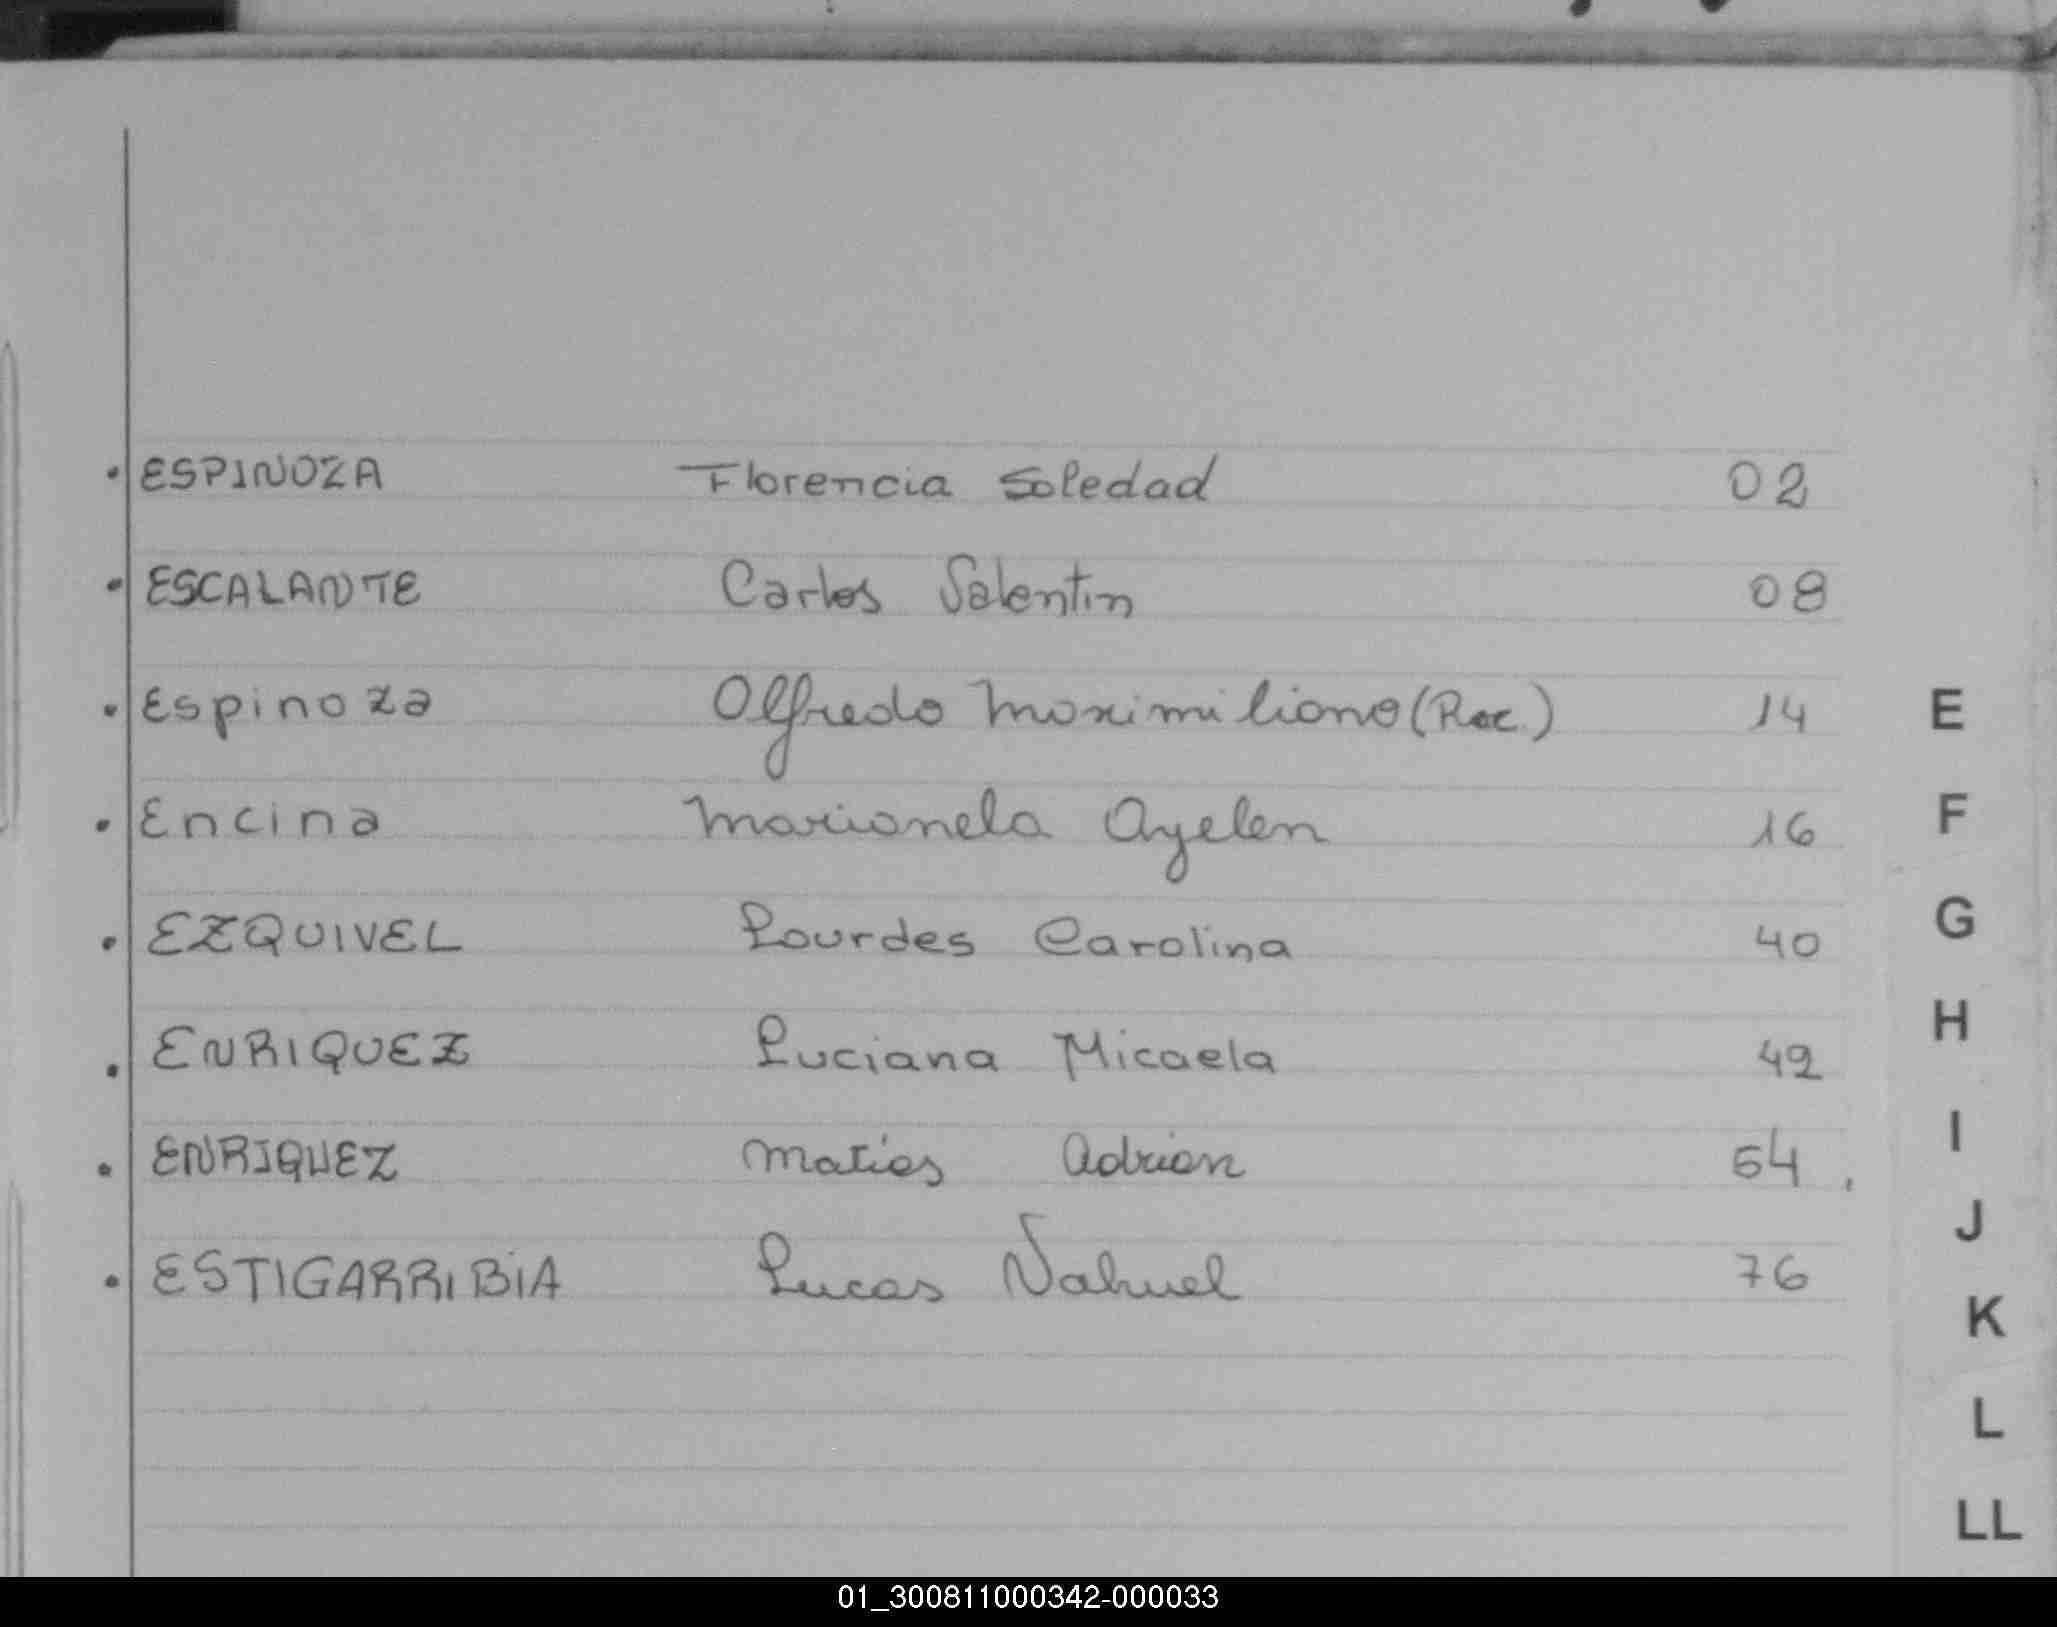 ESPINOZA Florencia Soledad 02
ESCALANTE Carlos Valentin 08
Espinoza Alfredo Maximiliano (Rec.) 14
E
Encina Marianela Ayelen 16
F
EZQUIVEL Lourdes Carolina 40
G
ENRIQUEZ Luciana Micaela 42
H
ENRIQUEZ Matías Adrian 54
I
J
ESTIGARRIBIA Lucas Nahuel 76
K
L
LL
01_300811000342-000033